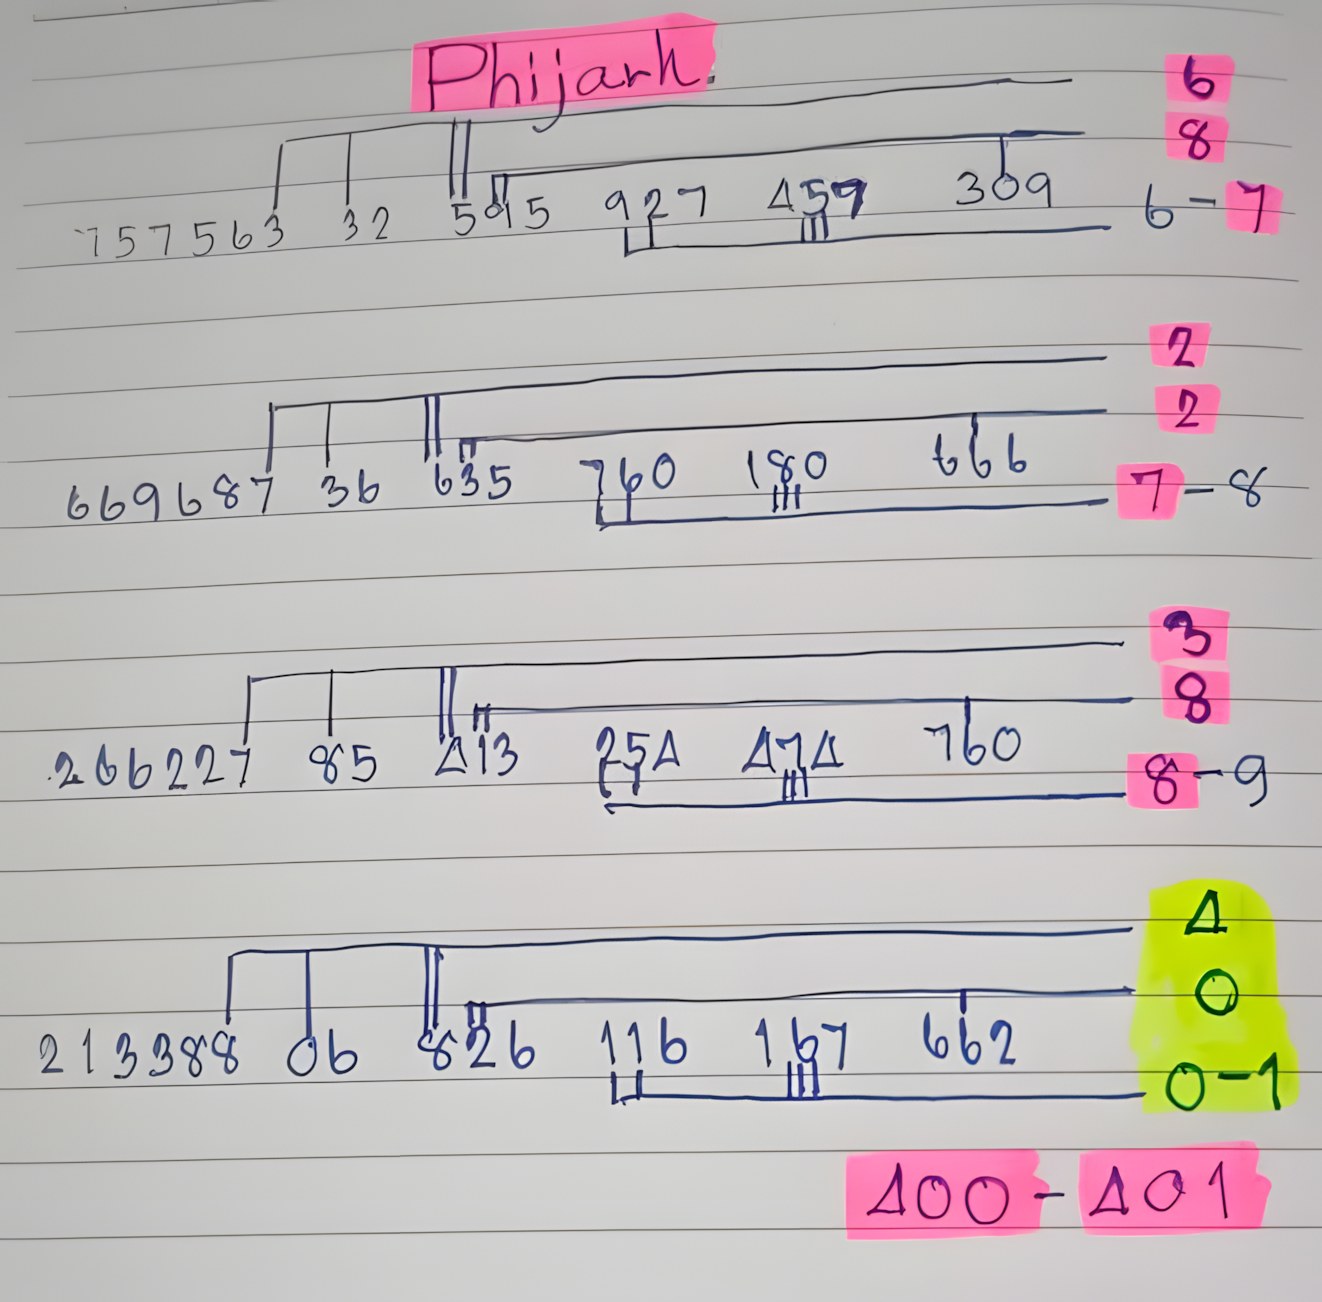 Phijarh.
6
8
757563 32 595 927 459 309 6-7
2
2
669687 36 635 760 180 666 7-8
3
8
266227 85 413 254 474 760 8-9
4
0
213388 06 826 116 167 662 0-1
400 - 401